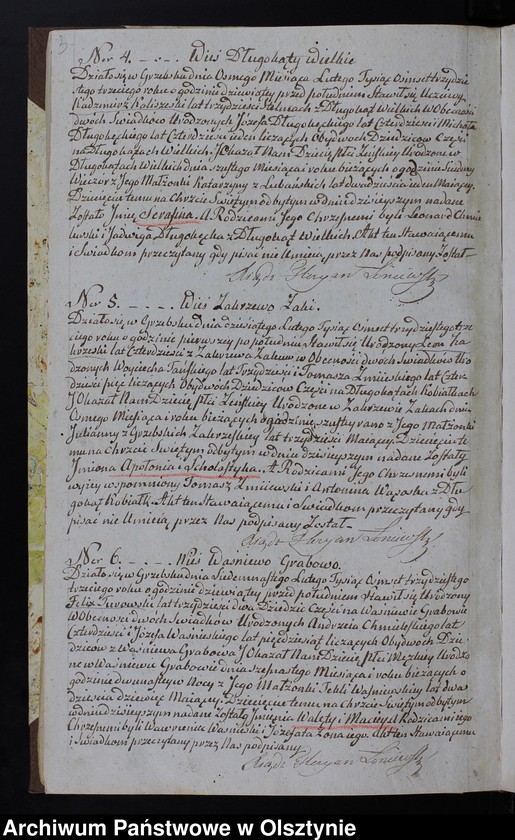 Nro 4. _ . _ . _ Wieś Długokąty Wielkie
Działo się w Grzebsku dnia Osmego Miesiąca Lutego Tysiąc Osmset trzydzie-
stego trzeciego roku o godzinie dziewiątey przed południem Stawił się Uczciwy
Kazimierz Kaliszeski lat trzydzieści z Długokąt Wielkich W Obecności
dwóch Swiadków Urodzonych Józefa Długokęckiego lat Czterdzieści i Michała
Długokęckiego lat Czterdzieści ieden liczących Obydwóch Dziedziców Części
na Długokątach Wielkich, J Okazał Nam Dziecię Płci Żeńskiey Urodzone w
Długokątach Wielkich dnia szustego Miesiąca i roku bieżących o godzinie Siudmy
Wieczór z Jego Małżonki Katarzyny z lat dwadzieścia ieden Maiącey.
Dziecięciu temu na Chrzcie Swiętym odbytym w dniu dzisieyszym nadane
Zostało Jmię Serafina. A Rodzicami Jego Chrzesnemi byli Leonard Chmie-
lewski i Jadwiga Długokęcka z Długokąt Wielkich. Akt ten Stawaiącemu
i Swiadkom przeczytany gdy pisać nie Umieią przez Nas podpisany Został
Xiądz
Nro 5. _ . _ . _ Wieś Zakrzewo Żaki.
Działo się w Grzebsku dnia dziesiątego Lutego Tysiąc Osmset trzydziestego trze-
ciego roku o godzinie pierwszey po południu Stawił się Urodzony Leon Za-
krzeski lat Czterdzieści z Zakrzewa Żaków w Obecności dwóch Swiadków Uro-
dzonych Woyciecha lat Trzydzieści i Tomasza Żmiiewskiego lat Czter-
dzieści pięć liczących Obydwóch Dziedziców Części na Długokątach Kobiałkach
J Okazał Nam Dziecię Płci Żeńskiey Urodzone w Zakrzewie Żakach dnia
Osmego Miesiąca i roku bieżących o godzinie szustey rano z Jego Małżonki
Julianny z Grzebskich Zakrzeskiey lat trzydzieści Maiącey. Dziecięciu te-
mu na Chrzcie Swiętym odbytym w dniu dzisieyszym nadane Zostały
Jmiona Apolonia i Scholastyka. A Rodzicami Jego Chrzesnemi byli
wyżey wspomniony Tomasz Żmiiewski i Antonina Wąsoska z Dłu-
gokąt Kobiałk. Akt ten Stawaiącemu i Swiadkom przeczytany gdy
pisać nie Umieią, przez Nas podpisany Został.
Xiądz
Nro 6. _ . _ . _ Wieś Waśniewo Grabowo.
Działo się w Grzebsku dnia Siedemnastego Lutego Tysiąc Osmset trzydziestego
trzeciego roku o godzinie dziewiątey przed południem Stawił się Urodzony
Felix Turowski lat trzydzieści dwa Dziedzic Części na Waśniewie Grabowie
W Obecności dwóch Swiadków Urodzonych Andrzeia Chmielewskiego lat
Czterdzieści i Józefa Waśniewskiego lat pięćdziesiąt liczących Obydwóch Dzie-
dziców z Waśniewa Grabowa J Okazał Nam Dziecię Płci Męzkiey Urodzo-
ne w Waśniewie Grabowie dnia szesnastego Miesiąca i roku bieżących o
godzinie dwunastey w Nocy z Jego Małżonki Tekli Waśniewskiey lat dwa-
dzieścia dziewięć Maiącey. Dziecięciu temu na Chrzcie Swiętym odbytym
w dniu dzisieyszym nadane Zostały Jmiona Walęty i Maciey A Rodzicami iego
Chrzesnemi byli Wawrzeniec Waśnieski i Józefata Żona iego. Akt ten Stawaiącemu
i Swiadkom przeczytany przez Nas podpisany
Xiądz
Archiwum Państwowe w Olsztynie